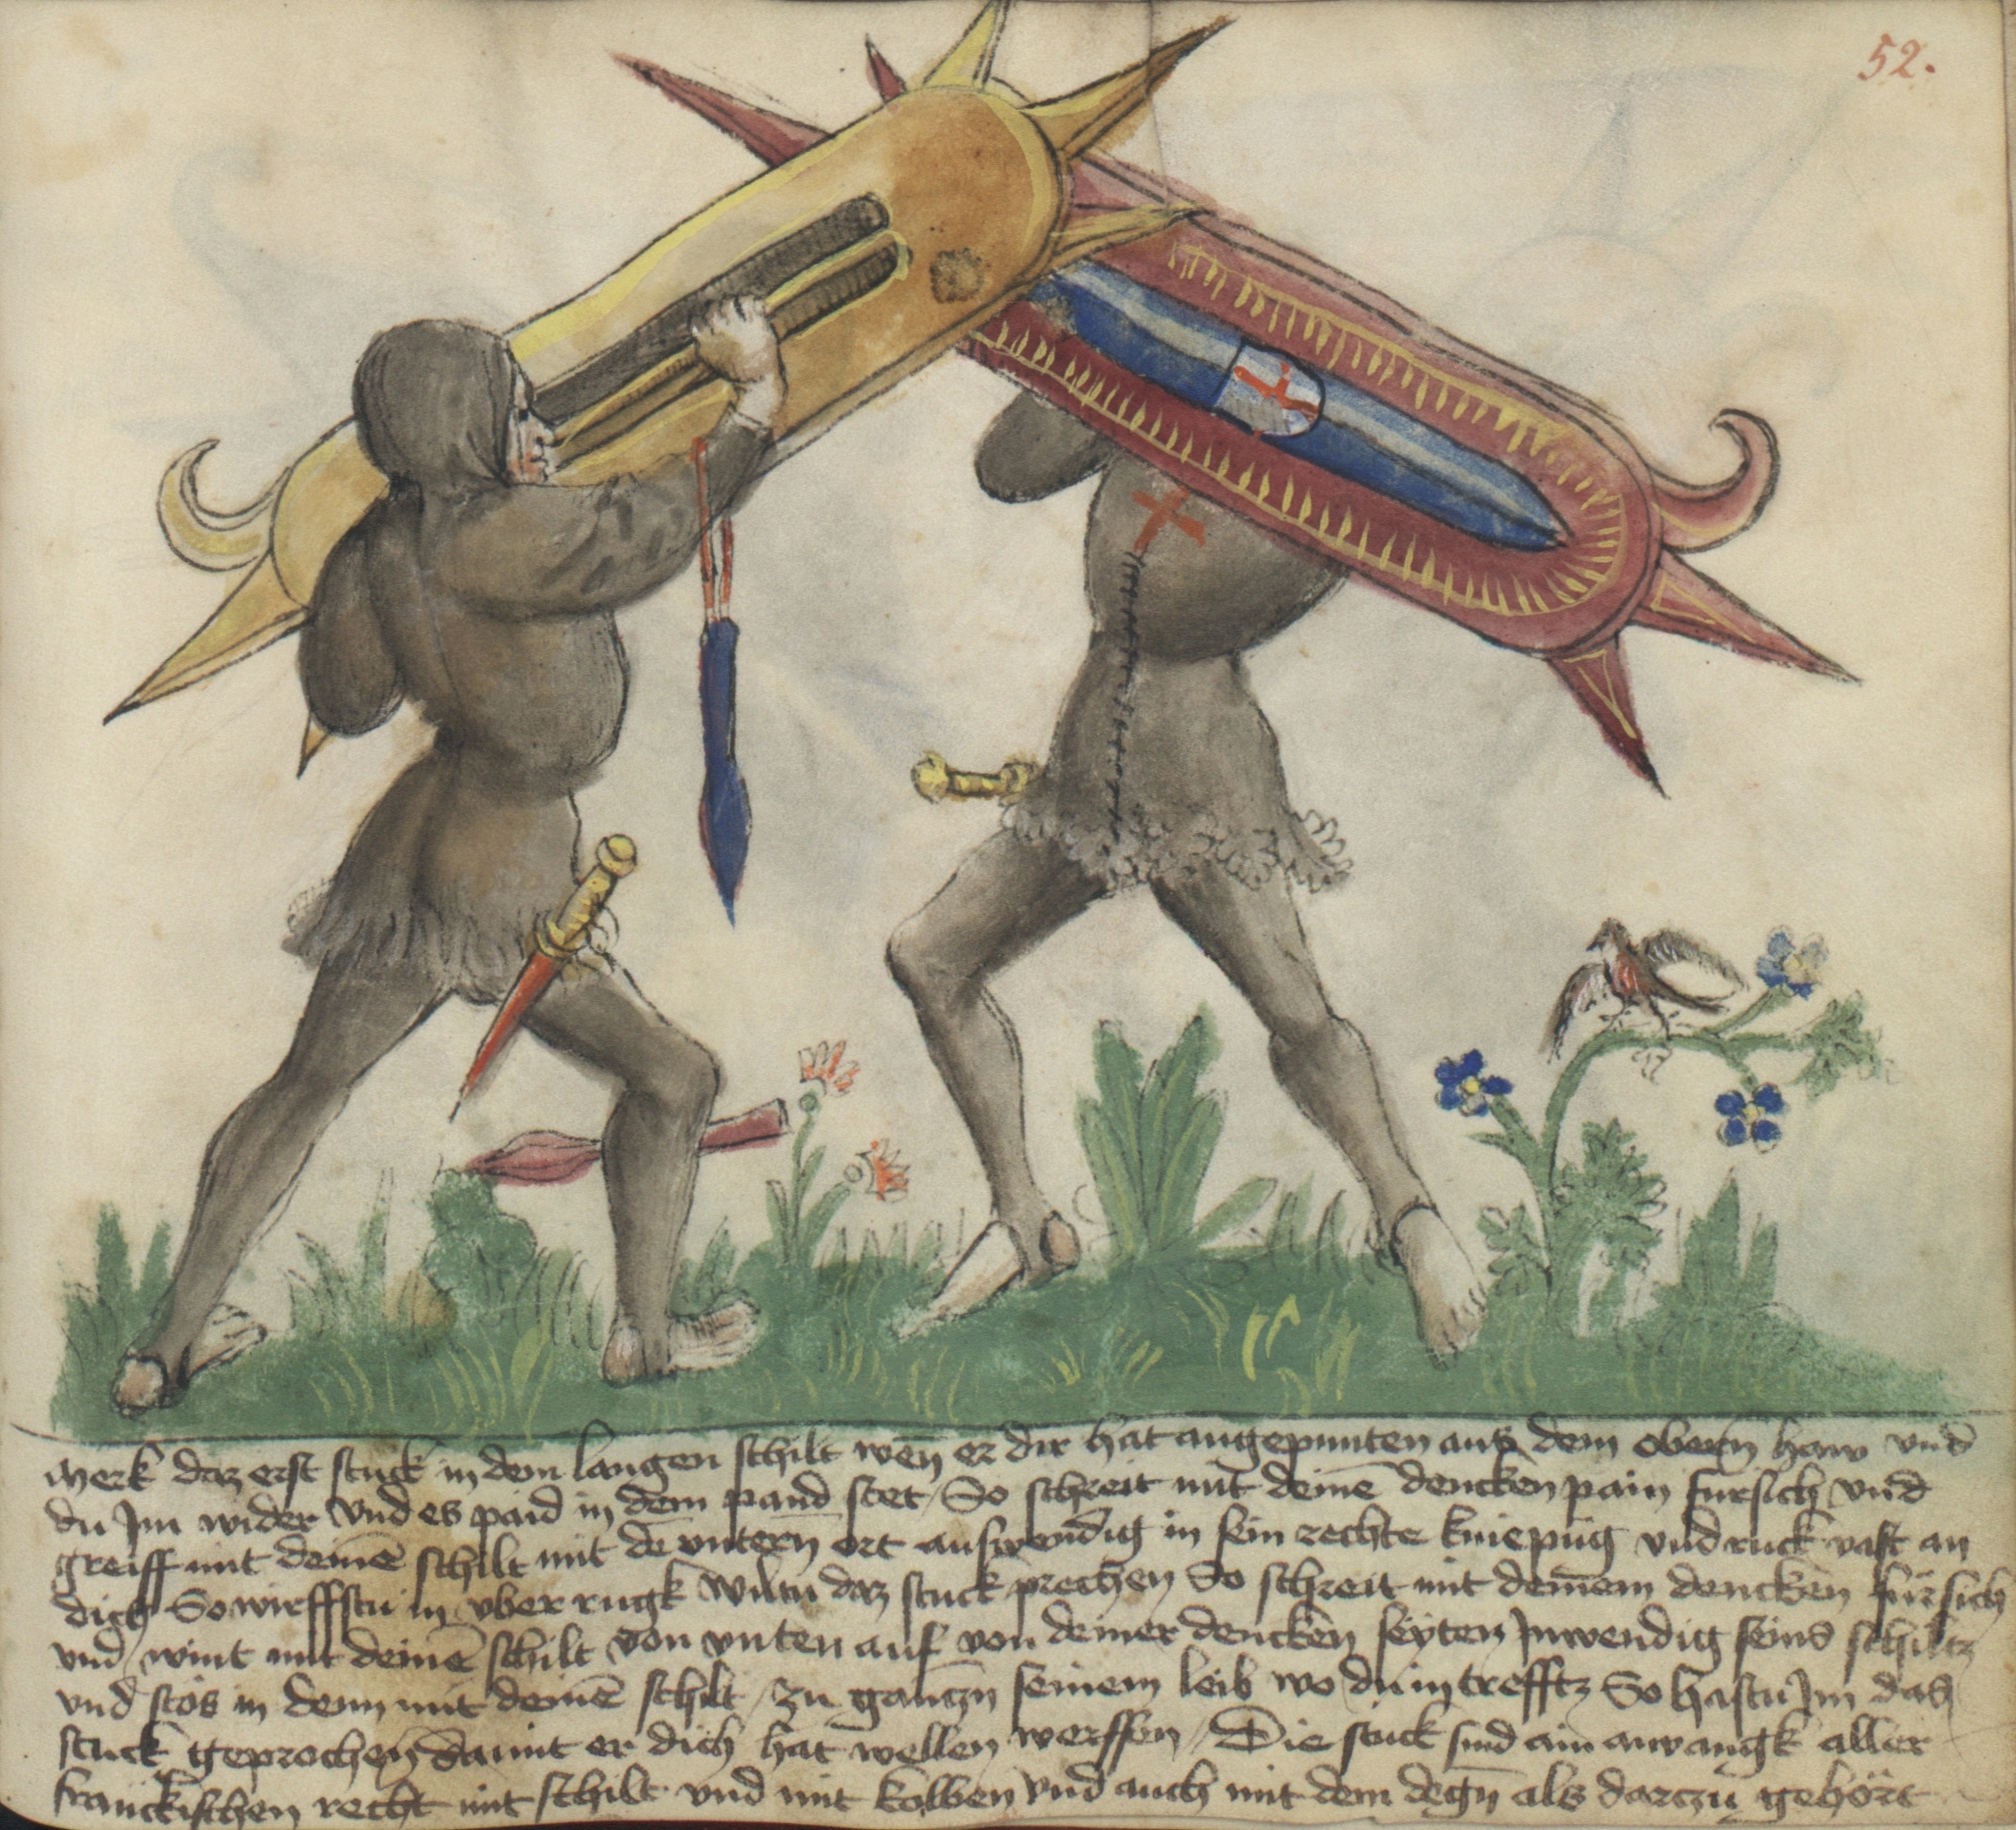 52.
Merk daz erst stuck in dem langen schilt wen̄ er dir hat angepunten aus dem obern̄ haw vnd
du Im wider vnd es paid in dem pand stet / So schreit mit deinē dencken pain fursich vnd
greiff mit deinē schilt mit dē vntern̄ ort auswendig in sein rechte kniepüg vnd ruck vast an
dich So wirffstu in vber rugk Wiltu daz stuck prechen So schreit mit deinem dencken fürsich
vnd wint mit deinē schilt von vnten auf von deiner dencken seyten Inwendig seins schiltz
vnd stos in denn mit deinē schilt / zu gantzn̄ seinem leib wo du in trefftz So hastu Im das
stuck geprochen damit er dich hat wellen werffen / Die stuck sind ain anvangk aller
franckischen recht mit schilt vnd mit kolben vnd auch mit dem degn̄ als darczu gehört